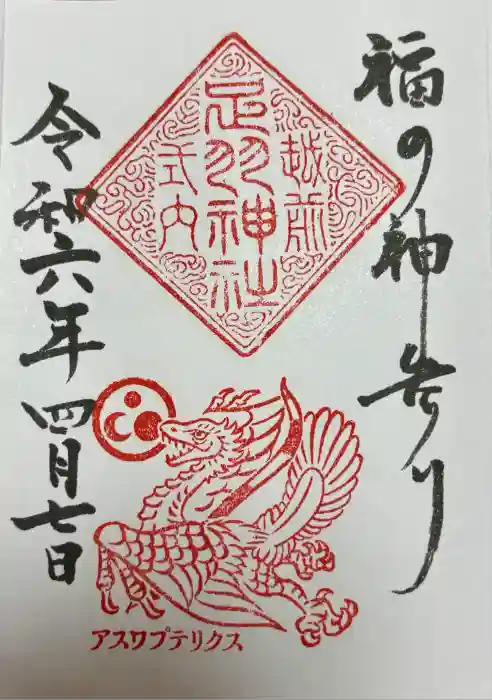 福の神歩り
越前
足羽神社
式内
令和六年四月七日
アスワプテリクス